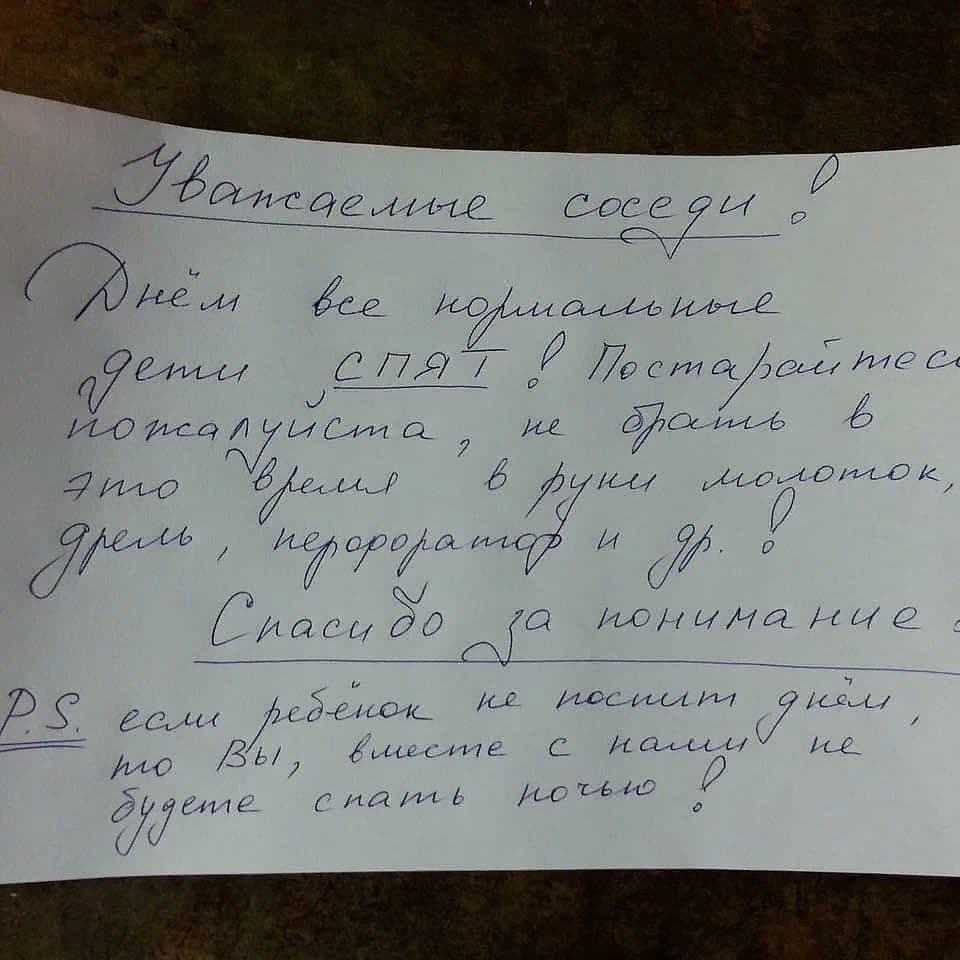 Уважаемые соседи!
Днём все нормальные
дети СПЯТ! Постарайтесь
пожалуйста, не брать в
это время в руки молоток,
дрель, перфоратор и др.!
Спасибо за понимание.
P.S. если ребёнок не поспит днём,
то Вы, вместе с нами не
будете спать ночью!